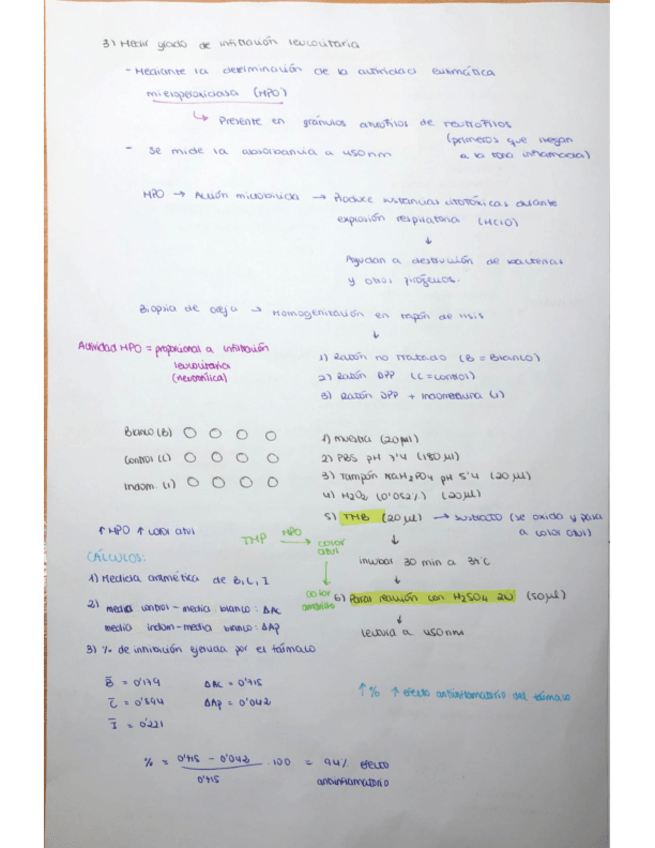 3) Medir grado de infiltración leucocitaria
- Mediante la determinación de la actividad enzimática
mieloperoxidasa (MPO)
↳ Presente en gránulos azurófilos de neutrófilos
(primeros que llegan
a la zona inflamada)
- Se mide la absorbancia a 450nm
MPO → Acción microbicida → Produce sustancias citotóxicas durante
explosión respiratoria (HClO)
↓
Ayudan a destrucción de bacterias
y otros patógenos.
Biopsia de oreja → Homogenización en tapón de lisis
↓
Actividad MPO = proporcional a infiltración
leucocitaria
(neutrofílica)
1) Ratón no tratado (B = Blanco)
2) Ratón DPP (C = control)
3) Ratón DPP + Indometacina (I)
Blanco (B) O O O O
Control (C) O O O O
Indom. (I) O O O O
1) muestra (20 μl)
2) PBS pH 7'4 (180 μl)
3) Tampón NaH2PO4 pH 5'4 (20 μl)
4) H2O2 (0'052%) (20 μl)
5) TMB (20 μl) → sustrato (se oxida y pasa
a color azul)
↓
incubar 30 min a 37°C
↓
6) Parar reacción con H2SO4 2N (50 μl)
↓
Lectura a 450nm
↑ MPO ↑ color azul
TMP MPO → color
azul
↓
color
amarillo
CÁLCULOS:
1) Medida aritmética de B, C, I
2) media control - media blanco : ΔAC
media indom - media blanco : ΔAP
3) % de inhibición ejercida por el fármaco
B = 0'179 ΔAC = 0'715
C = 0'894 ΔAP = 0'042
I = 0'221
↑ % ↑ efecto antiinflamatorio del fármaco
% = 0'715 - 0'042 / 0'715 · 100 = 94% efecto
antiinflamatorio